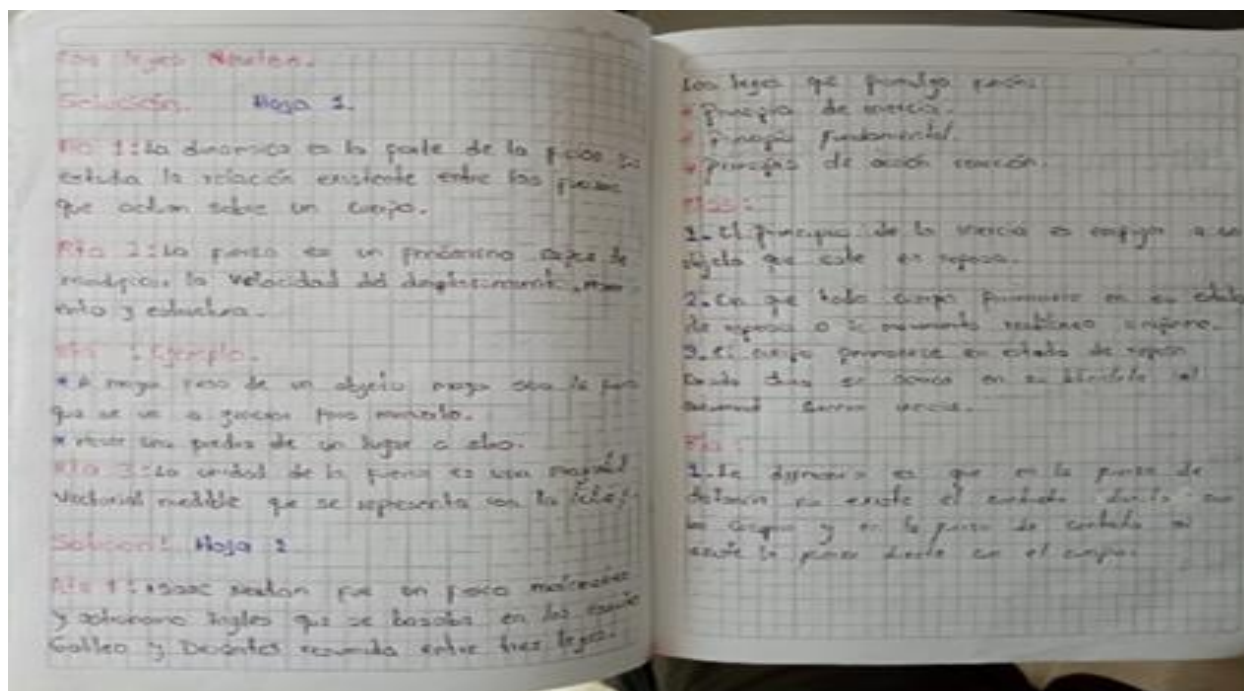 Las leyes Newton.
Solución. Hoja 1.
Rta 1: La dinamica es la parte de la física que
estudia la relación existente entre las fuerzas
que actuan sobre un cuerpo.
Rta 2: La fuerza es un fenómeno capaz de
modificar la velocidad del desplazamiento, movi
ento y estructura.
Rta : Ejemplo.
* A mayor peso de un objeto mayor sera la fuerza
que se va a para moverlo.
* mover una piedra de un lugar a otro.
Rta 3: La unidad de la fuerza es una magnitud
Vectorial medible que se representa con la letra f.
Solucion: Hoja 2
Rta 1: isaac newton fue un fisico
y ingles que se basaba en los
Galileo y Descartes entre tres leyes.
Los leyes que promulgo fueron:
* principio de inercia.
* principio fundamental.
* principio de acción reacción.
Rta :
1. El principio de la inercia es a un
objeto que este en reposo.
2. En que todo cuerpo permanece en su estado
de reposo o de movimiento rectilineo uniforme.
3. El cuerpo permanece en estado de reposo
en su
inercia.
Rta :
1. La es que en la fuerza de
no existe el contacto directo con
los cuerpos y en la fuerza de contacto si
existe la fuerza directa con el cuerpo.